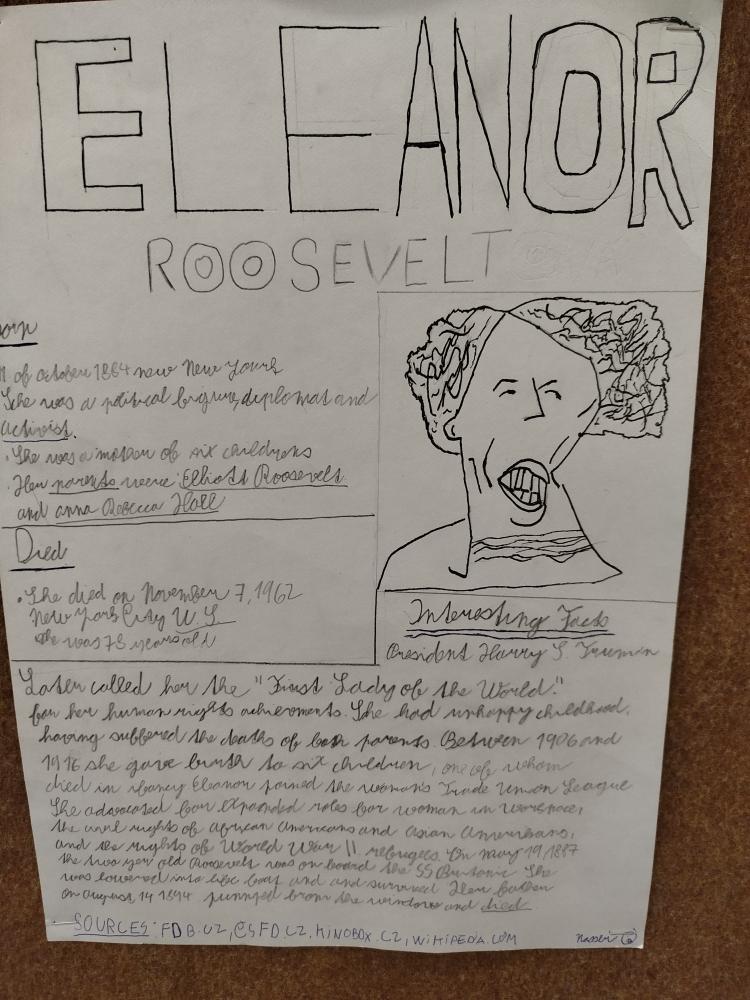 ELEANOR
ROOSEVELT
orn
11 of october 1884 new New Yourk
She was a political figure, diplomat and
activist.
• She was a mother of six childrens
• Her parents were Elliott Roosevelt
and anna Rebecca Hall
Died
• She died on November 7, 1962
New York City U.S
She was 78 years old
Interesting Facts
President Harry S. Truman
Later called her the "First Lady of the World."
for her human rights achievements. She had unhappy childhood,
having suffered the deaths of both parents. Between 1906 and
1916 she gave birth to six children, one of whom
died in infancy Eleanor joined the woman's Trade Union League
She advocated for expanded roles for woman in workplace,
the civil rights of African Americans and Asian Amerikans,
and the rights of World War II refugees. On may 19, 1887
the two year old Roosevelt was on board the SS Britanic She
was lowered into life boat and and survived Her father
on August, 14 1894 jumped from the window and died
SOURCES: FDB.UZ, CSFD.CZ, KINOBOX.CZ, WIKIPEDIA.COM